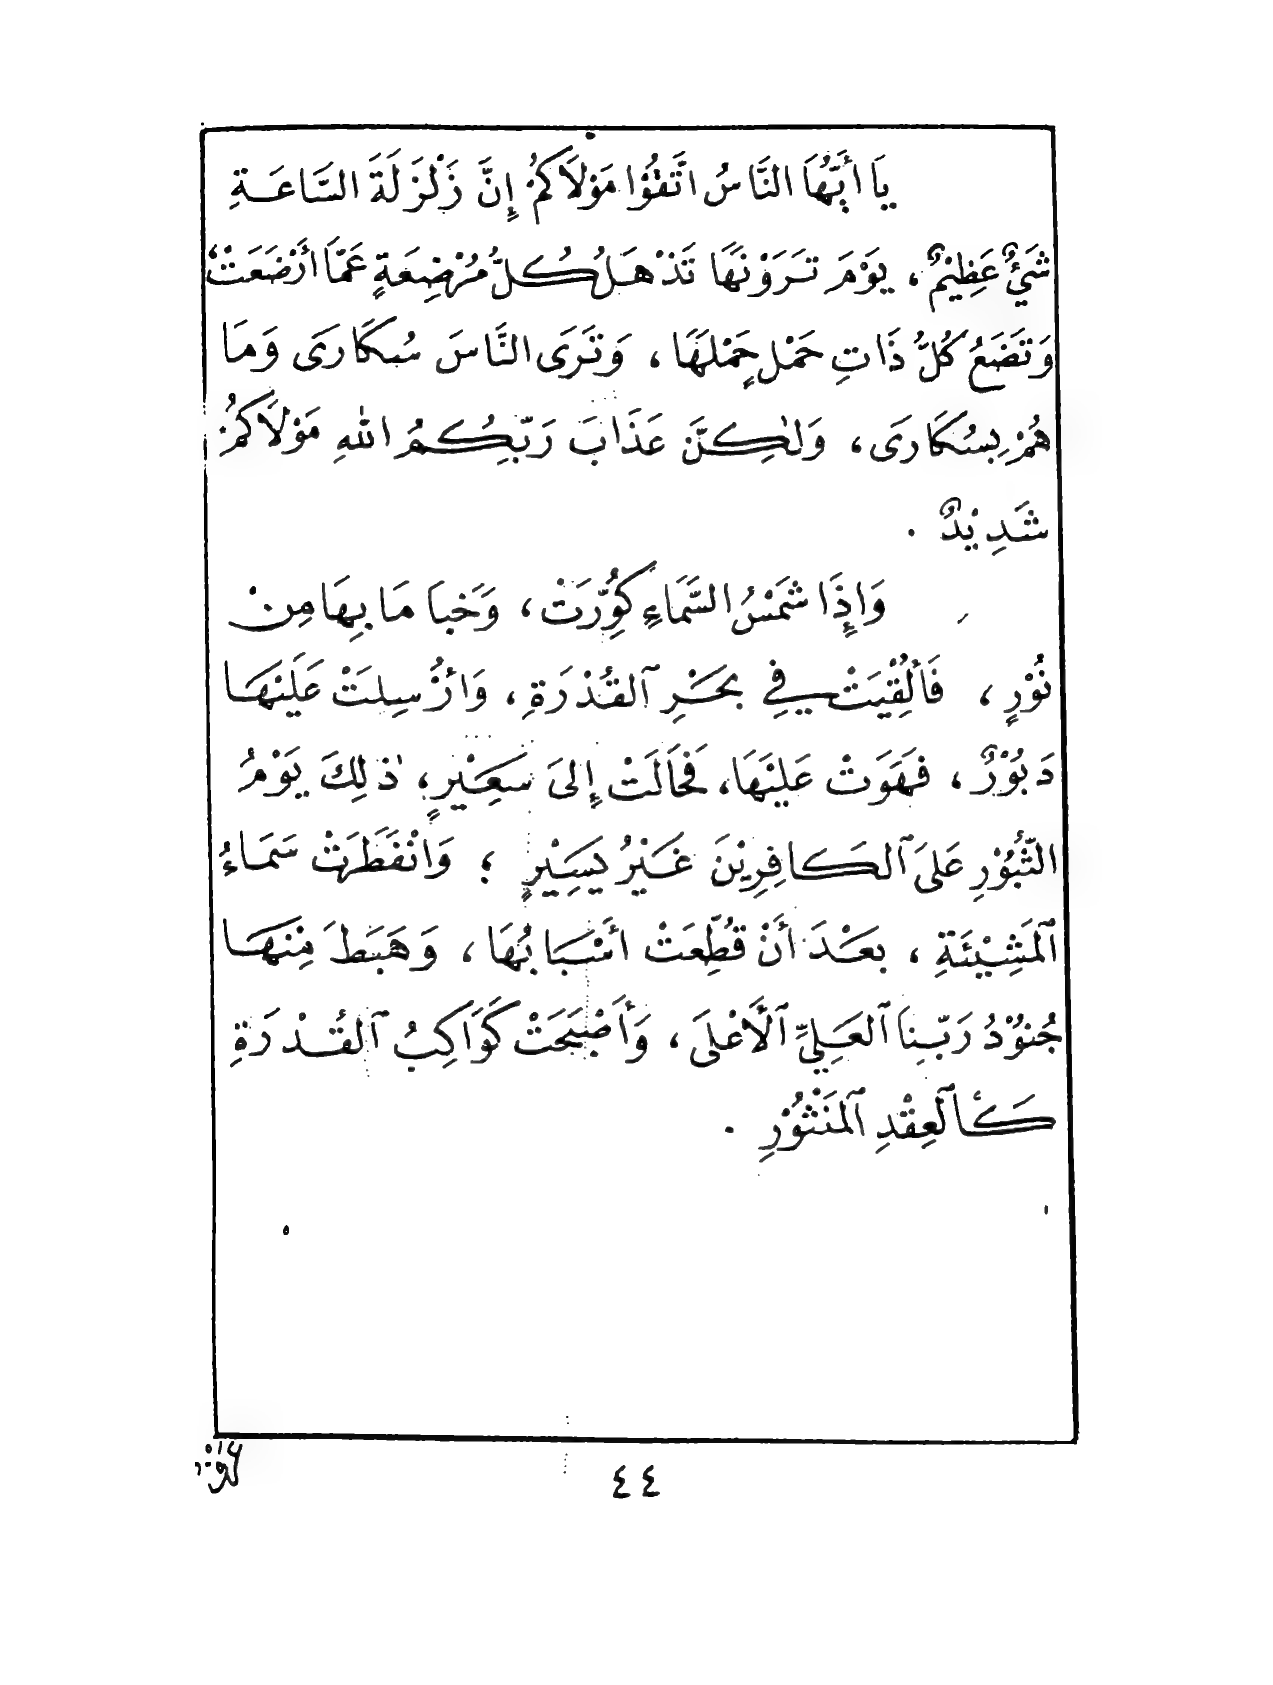 يَا أَيُّهَا النَّاسُ اتَّقُوْا مَوْلَاكُمْ إِنَّ زَلْزَلَةَ السَّاعَةِ
شَيْءٌ عَظِيْمٌ، يَوْمَ تَرَوْنَهَا تَذْهَلُ كُلُّ مُرْضِعَةٍ عَمَّا أَرْضَعَتْ
وَتَضَعُ كُلُّ ذَاتِ حَمْلٍ حَمْلَهَا، وَتَرَى النَّاسَ سُكَارَى وَمَا
هُمْ بِسُكَارَى، وَلٰكِنَّ عَذَابَ رَبِّكُمُ اللهِ مَوْلَاكُمْ
شَدِيْدٌ .
وَإِذَا شَمْسُ السَّمَاءِ كُوِّرَتْ، وَخَبَا مَا بِهَا مِنْ
نُوْرٍ، فَأُلْقِيَتْ فِي بَحْرِ ٱلقُدْرَةِ، وَأُرْسِلَتْ عَلَيْهَا
دَبُوْرٌ، فَهَوَتْ عَلَيْهَا، فَحَالَتْ إِلَى سَعِيْرٍ، ذٰلِكَ يَوْمُ
الثُّبُوْرِ عَلَى ٱلكَافِرِيْنَ غَيْرُ يَسِيْرٍ ؛ وَانْفَطَرَتْ سَمَاءُ
ٱلمَشِيْئَةِ، بَعْدَ أَنْ قُطِّعَتْ أَسْبَابُهَا، وَهَبَطَ مِنْهَا
جُنُوْدُ رَبِّنَا ٱلعَلِيِّ ٱلأَعْلَى، وَأَصْبَحَتْ كَوَاكِبُ ٱلقُدْرَةِ
كَٱلعِقْدِ ٱلمَنْثُوْرِ .
٤٤